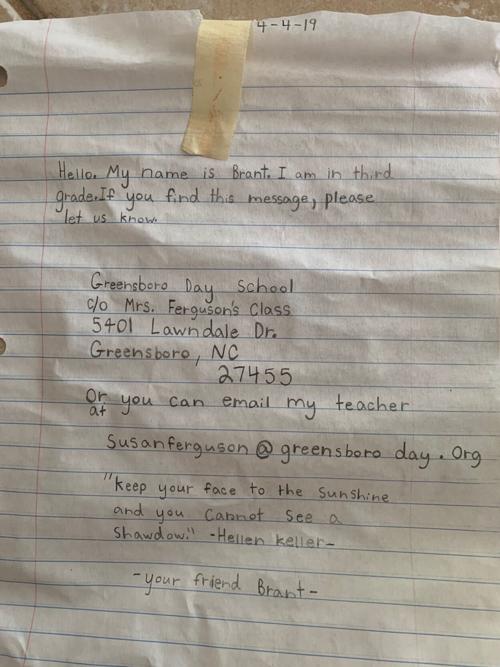 4-4-19
Hello. My name is Brant. I am in third
grade. If you find this message, please
let us know.
Greensboro Day School
c/o Mrs. Ferguson's Class
5401 Lawndale Dr.
Greensboro, NC
27455
Or you can email my teacher
at
Susanferguson@greensboro day.Org
"keep your face to the Sunshine
and you Cannot See a
Shawdow." -Hellen keller-
-your friend Brant-